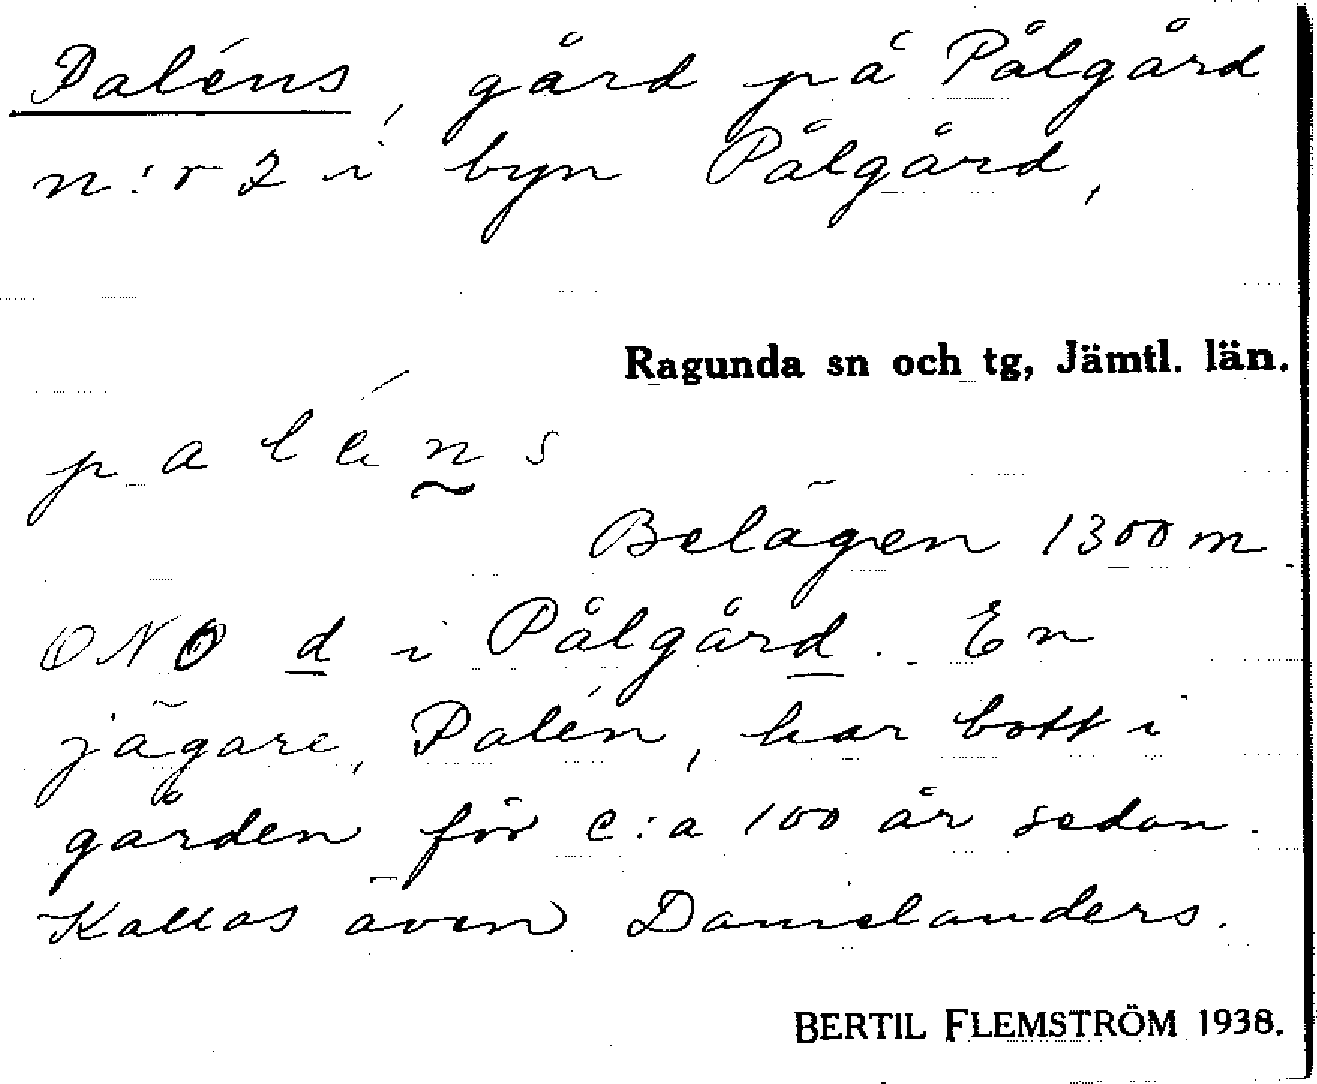 Paléns, gård på Pålgård
n:r 2 i byn Pålgård,
Ragunda sn och tg, Jämtl. län.
paléns
Belägen 1300 m
ONO d i Pålgård. En
jägare, Palén, har bott i
gården för c:a 100 år sedan.
Kallas även Danielanders.
BERTIL FLEMSTRÖM 1938.